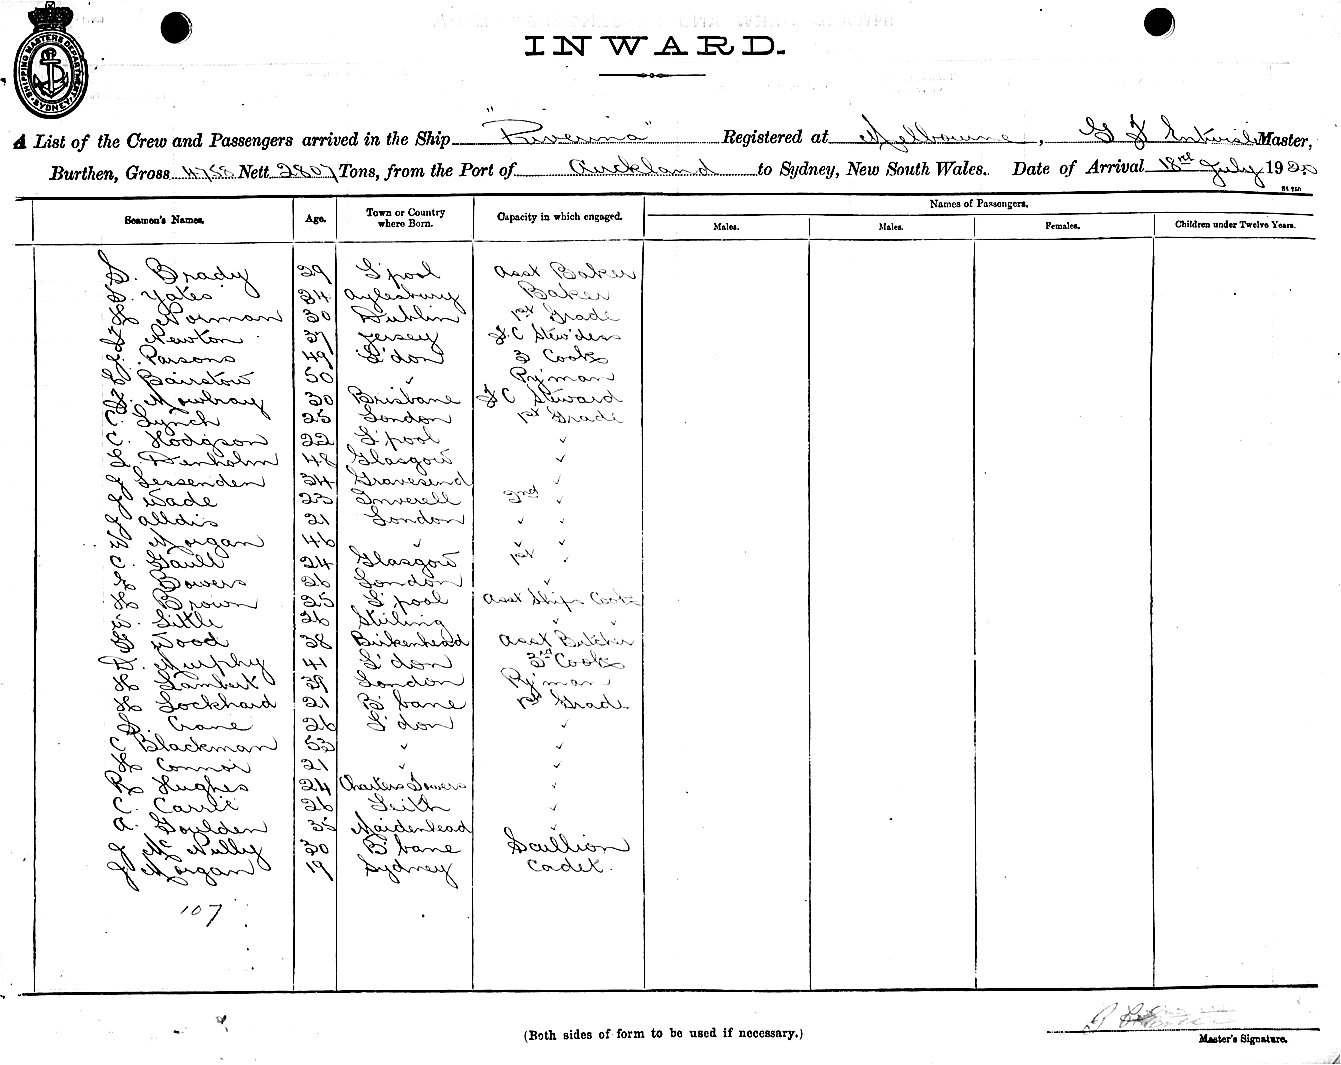 INWARD.
SHIPPING MASTERS DEPARTMENT SYDNEY
A List of the Crew and Passengers arrived in the Ship "Riverina" Registered at Melbourne, G Master,
Burthen, Gross 4758 Nett 2807 Tons, from the Port of Auckland to Sydney, New South Wales. Date of Arrival 18 July 1920
Seamen's Names. Age. Town or Country where Born. Capacity in which engaged. Names of Passengers.
Males. Males. Females. Children under Twelve Years.
Brady 29 L'pool Asst Baker
Yates 24 Aylesbury Baker
Norman 30 Dublin 1st Grade
Newton 37 Jersey F.C Stew'dess
Parsons 49 L'don 3 Cook
Bairstow 50 " P'yman
Mowbray 30 Brisbane F C Steward
C. Lynch 25 London 1st Grade
C. Hodgson 22 L'pool "
Denholm 48 Glasgow "
J Lessenden 34 Gravesend "
J Wade 23 Inverell 2nd "
J Alldis 21 London " "
Morgan 46 " " "
C. Gault 24 Glasgow 1st "
Bowers 26 London "
H Brown 25 L'pool Asst Ships Cook
Little 26 Stirling " "
Wood 38 Birkenhead Asst Butcher
Murphy 41 L'don 3rd Cook
H Lambert 39 London P'yman
H Lockhard 21 B'bane 1st Grade
S. Crane 26 L'don "
C Blackman 53 " "
H Connor 21 " "
R Hughes 24 Charters Towers "
C. Carre 26 Leith "
A. Goulden 35 Maidenhead "
J McNully 30 B'bane Scullion
J Morgan 19 Sydney Cadet.
107
(Both sides of form to be used if necessary.)
Master's Signature.